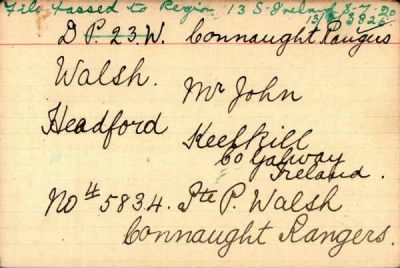 File passed to Region 13 S. Ireland 8-7-20
D P. 23. W. Connaught Rangers
Walsh. Mr John
Headford Keelkill
Co Galway
Ireland.
No 4 5834. Pte P. Walsh
Connaught Rangers.